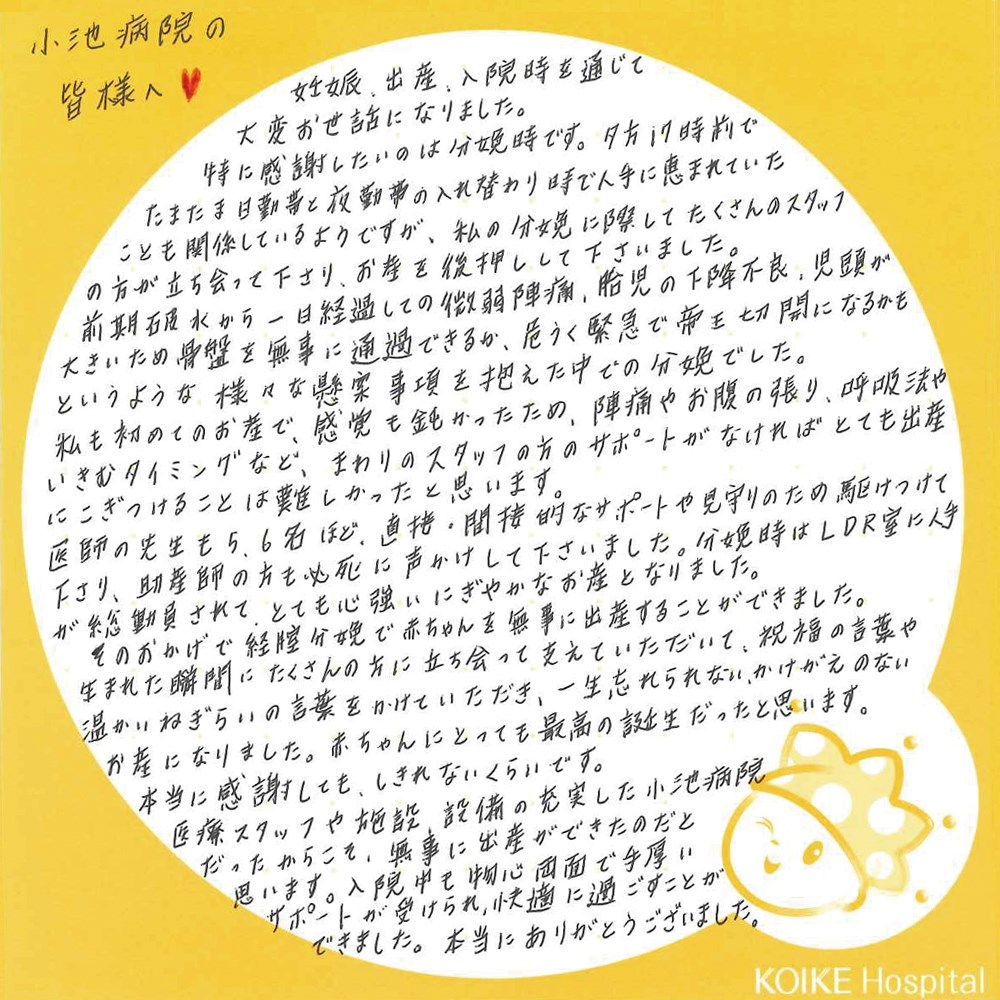 小池病院の
皆様へ
妊娠、出産、入院時を通じて
大変お世話になりました。
特に感謝したいのは分娩時です。夕方17時前で
たまたま日勤帯と夜勤帯の入れ替わり時で人手に恵まれていた
ことも関係しているようですが、私の分娩に際してたくさんのスタッフ
の方が立ち会って下さり、お産を後押しして下さいました。
前期破水から一日経過しての微弱陣痛、胎児の下降不良、児頭が
大きいため骨盤を無事に通過できるか、危うく緊急で帝王切開になるかも
というような様々な懸案事項を抱えた中での分娩でした。
私も初めてのお産で、感覚も鈍かったため、陣痛やお腹の張り、呼吸法や
いきむタイミングなど、まわりのスタッフの方のサポートがなければとても出産
にこぎつけることは難しかったと思います。
医師の先生も5、6名ほど、直接・間接的なサポートや見守りのため駆けつけて
下さり、助産師の方も必死に声かけして下さいました。分娩時はLDR室に人手
が総動員されて、とても心強いにぎやかなお産となりました。
そのおかげで経腟分娩で赤ちゃんを無事に出産することができました。
生まれた瞬間にたくさんの方に立ち会って支えていただいて、祝福の言葉や
温かいねぎらいの言葉をかけていただき、一生忘れられない、かけがえのない
お産になりました。赤ちゃんにとっても最高の誕生だったと思います。
本当に感謝しても、しきれないくらいです。
医療スタッフや施設、設備の充実した小池病院
だったからこそ、無事に出産ができたのだと
思います。入院中も物心両面で手厚い
サポートが受けられ、快適に過ごすことが
できました。本当にありがとうございました。
KOIKE Hospital